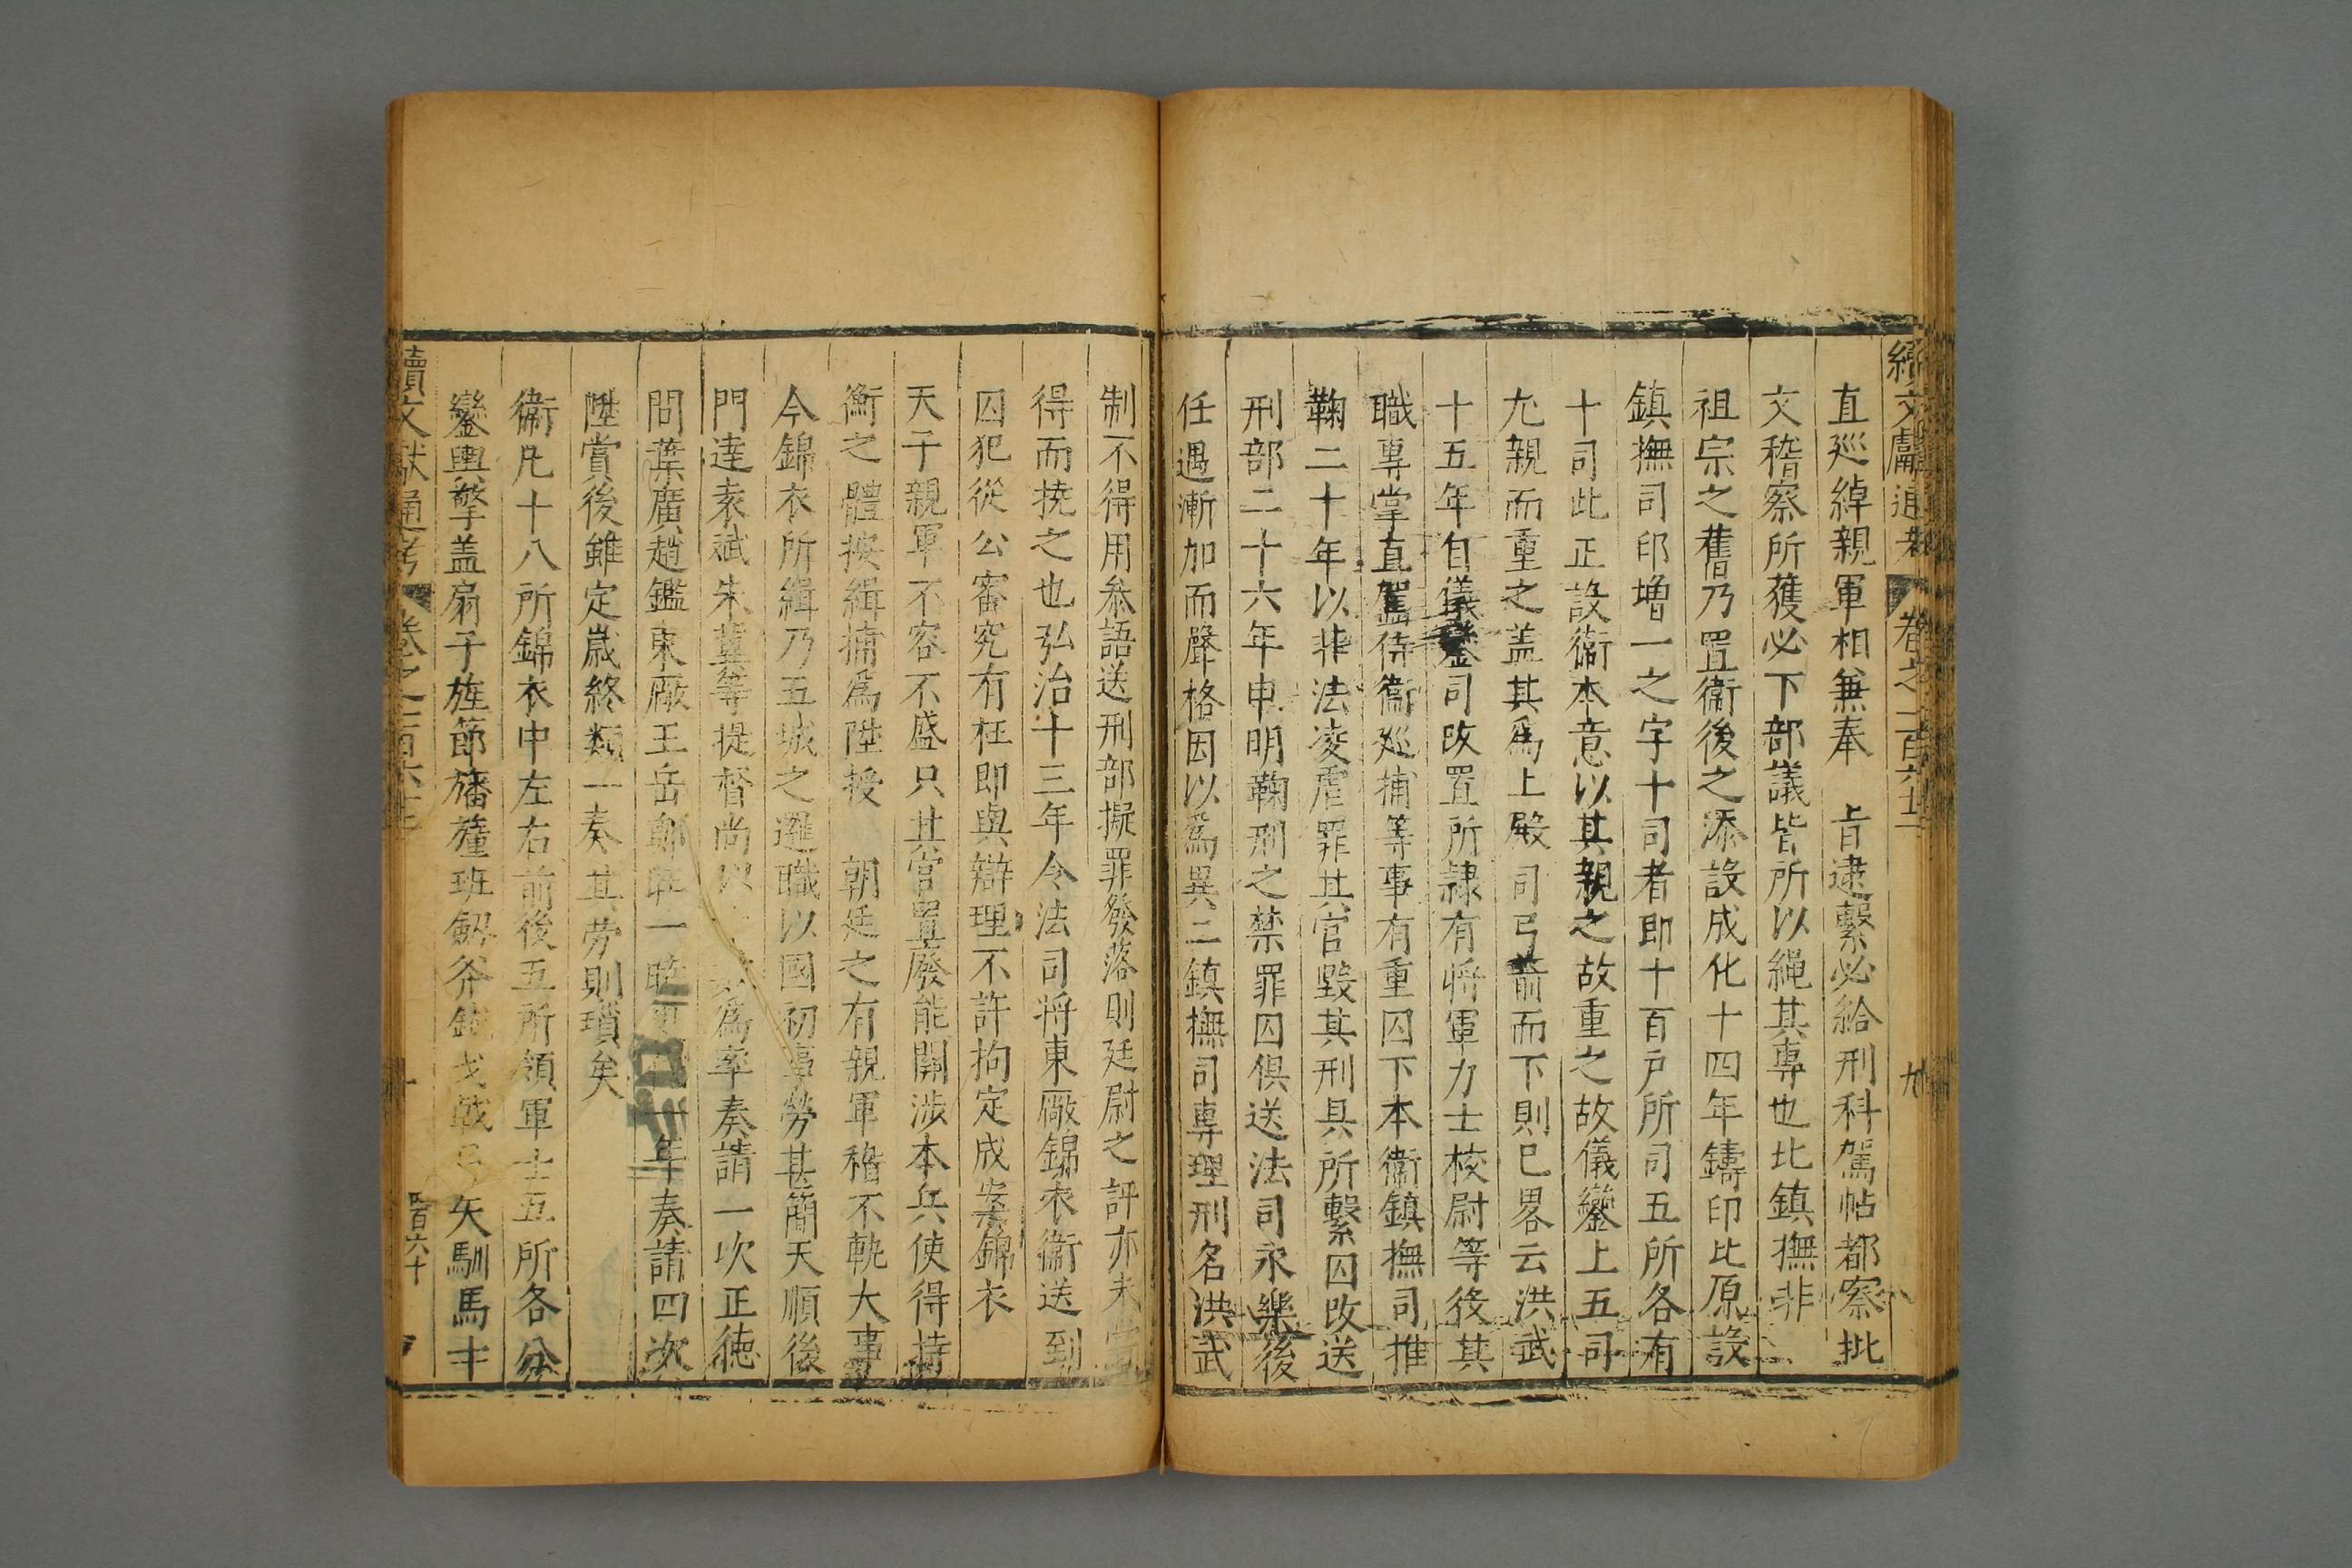 續文獻通考 卷之一百六十二 九
直廵綽親軍相兼奉 旨逮繫必給刑科駕帖都察批
文稽察所獲必下部議皆所以繩其專也比鎮撫非
祖宗之舊乃置衛後之添設成化十四年鑄印比原設
鎮撫司印增一之字十司者即十百戶所司五所各有
十司此正設衛本意以其親之故重之故儀鑾上五司
九親而重之盖其爲上殿司弓箭而下則已畧云洪武
十五年自儀鑾司改置所隷有將軍力士校尉等役其
職專掌直駕侍衛廵捕等事有重囚下本衛鎮撫司推
鞠二十年以非法凌虐罪其官毀其刑具所繫囚改送
刑部二十六年申明鞠刑之禁罪囚俱送法司永樂後
任遇漸加而聲格因以爲異二鎮撫司專理刑名洪武
制不得用叅語送刑部擬罪發落則廷尉之評亦未嘗
得而撓之也弘治十三年令法司将東廠錦衣衛送到
囚犯從公審究有枉即與辯理不許拘定成案錦衣
天子親軍不容不盛只其官置廢能開涉本兵使得持
衡之體按緝捕爲陞授 朝廷之有親軍稽不軌大事
今錦衣所緝乃五城之邏職以國初事勞甚簡天順後
門達袁斌朱驥等提督尚以 爲率奏請一次正德
問葉廣趙鑑東廠王岳 一 年奏請四次
陞賞後雖定歲終類一奏其勞則瑣矣
衛凡十八所錦衣中左右前後五所領軍士五所各分
鑾輿擎盖扇子旌節旛幢班劔斧鉞戈戟弓矢馴馬十
續文獻通考 卷之一百六十二 十 百六十